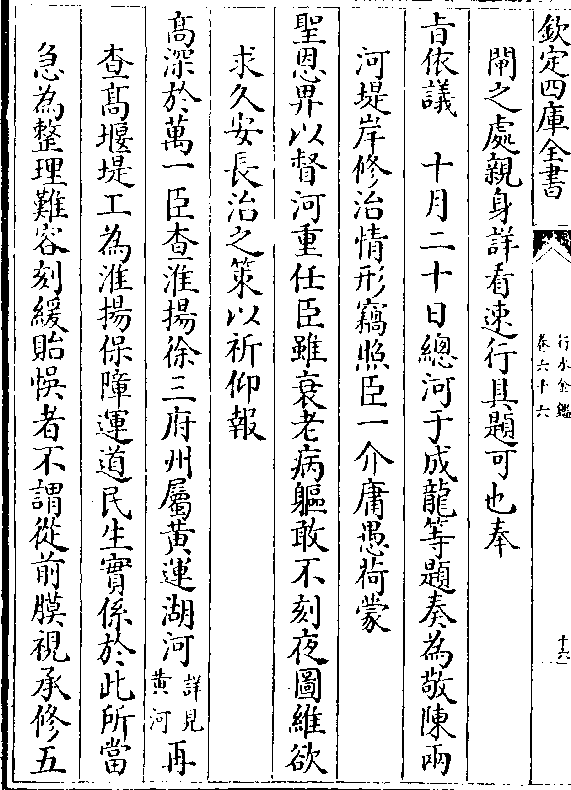 欽定四庫全書
行水金鑑
卷六十六
十六
閘之處親身詳看速行具題可也奉
㫖依議　十月二十日總河于成龍等題奏為敬陳兩
河堤岸修治情形竊照臣一介庸愚荷蒙
聖恩畀以督河重任臣雖衰老病軀敢不刻夜圖維欲
求久安長治之策以祈仰報
髙深於萬一臣查淮揚徐三府州屬黄運湖河詳見黄河再
查髙堰堤工為淮揚保障運道民生實係於此所當
急為整理難容刻緩貽悞者不謂從前膜視承修五